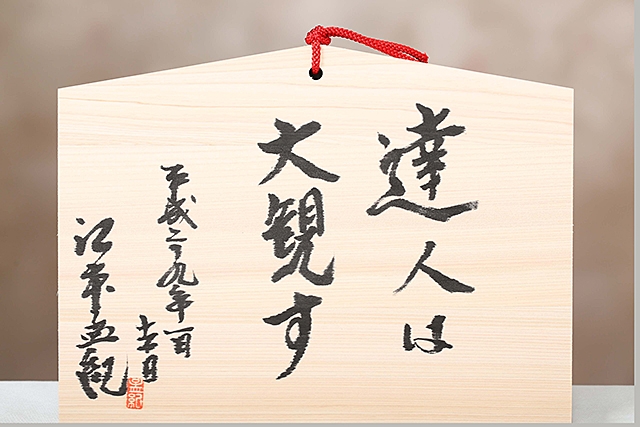 達人は
大観す
平成二十九年一月
吉日
江東孟紀
孟紀